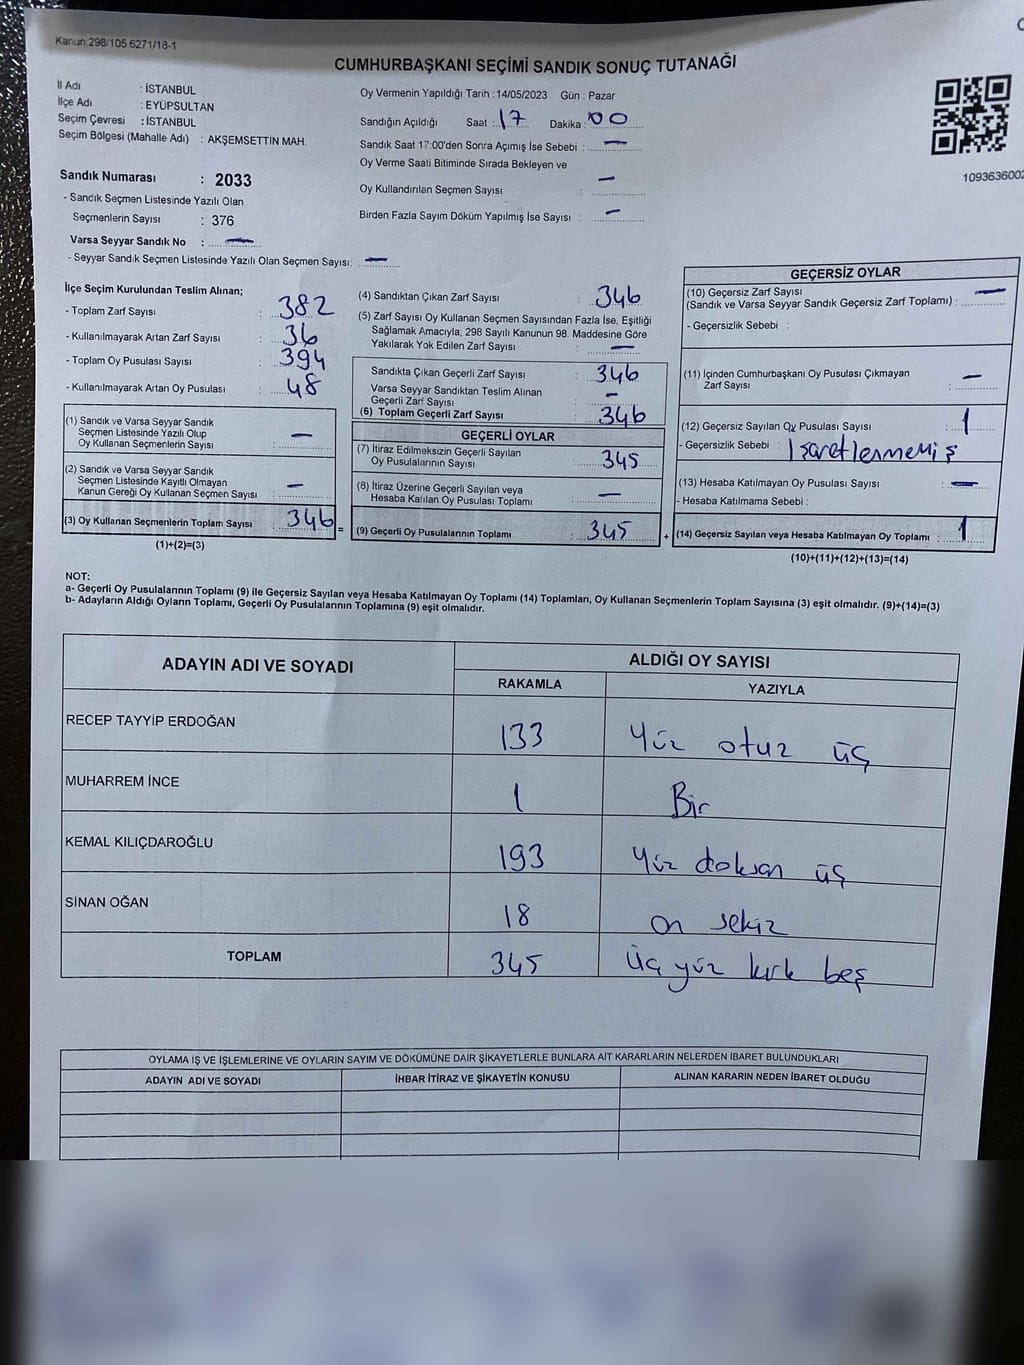 Kanun 298/105 6271/18-1
CUMHURBAŞKANI SEÇİMİ SANDIK SONUÇ TUTANAĞI
İl Adı : İSTANBUL
İlçe Adı : EYÜPSULTAN
Seçim Çevresi : İSTANBUL
Seçim Bölgesi (Mahalle Adı) : AKŞEMSETTİN MAH.
Oy Vermenin Yapıldığı Tarih : 14/05/2023 Gün : Pazar
Sandığın Açıldığı Saat : 17 Dakika : 00
Sandık Saat 17:00'den Sonra Açımış İse Sebebi : —
Oy Verme Saati Bitiminde Sırada Bekleyen ve
Oy Kullandırılan Seçmen Sayısı : —
Birden Fazla Sayım Döküm Yapılmış İse Sayısı : —
109363600
Sandık Numarası : 2033
- Sandık Seçmen Listesinde Yazılı Olan
Seçmenlerin Sayısı : 376
Varsa Seyyar Sandık No : —
- Seyyar Sandık Seçmen Listesinde Yazılı Olan Seçmen Sayısı: —
İlçe Seçim Kurulundan Teslim Alınan;
- Toplam Zarf Sayısı : 382
- Kullanılmayarak Artan Zarf Sayısı : 36
- Toplam Oy Pusulası Sayısı : 394
- Kullanılmayarak Artan Oy Pusulası : 48
(1) Sandık ve Varsa Seyyar Sandık
Seçmen Listesinde Yazılı Olup
Oy Kullanan Seçmenlerin Sayısı : —
(2) Sandık ve Varsa Seyyar Sandık
Seçmen Listesinde Kayıtlı Olmayan
Kanun Gereği Oy Kullanan Seçmen Sayısı : —
(3) Oy Kullanan Seçmenlerin Toplam Sayısı : 346 =
(1)+(2)=(3)
(4) Sandıktan Çıkan Zarf Sayısı : 346
(5) Zarf Sayısı Oy Kullanan Seçmen Sayısından Fazla İse, Eşitliği
Sağlamak Amacıyla; 298 Sayılı Kanunun 98. Maddesine Göre
Yakılarak Yok Edilen Zarf Sayısı : —
Sandıkta Çıkan Geçerli Zarf Sayısı : 346
Varsa Seyyar Sandıktan Teslim Alınan
Geçerli Zarf Sayısı : —
(6) Toplam Geçerli Zarf Sayısı : 346
GEÇERLİ OYLAR
(7) İtiraz Edilmeksizin Geçerli Sayılan
Oy Pusulalarının Sayısı : 345
(8) İtiraz Üzerine Geçerli Sayılan veya
Hesaba Katılan Oy Pusulası Toplamı : —
(9) Geçerli Oy Pusulalarının Toplamı : 345 +
GEÇERSİZ OYLAR
(10) Geçersiz Zarf Sayısı
(Sandık ve Varsa Seyyar Sandık Geçersiz Zarf Toplamı) : —
- Geçersizlik Sebebi :
(11) İçinden Cumhurbaşkanı Oy Pusulası Çıkmayan
Zarf Sayısı : —
(12) Geçersiz Sayılan Oy Pusulası Sayısı : 1
- Geçersizlik Sebebi : İşaretlenmemiş
(13) Hesaba Katılmayan Oy Pusulası Sayısı : —
- Hesaba Katılmama Sebebi :
(14) Geçersiz Sayılan veya Hesaba Katılmayan Oy Toplamı : 1
(10)+(11)+(12)+(13)=(14)
NOT:
a- Geçerli Oy Pusulalarının Toplamı (9) ile Geçersiz Sayılan veya Hesaba Katılmayan Oy Toplamı (14) Toplamları, Oy Kullanan Seçmenlerin Toplam Sayısına (3) eşit olmalıdır. (9)+(14)=(3)
b- Adayların Aldığı Oyların Toplamı, Geçerli Oy Pusulalarının Toplamına (9) eşit olmalıdır.
ADAYIN ADI VE SOYADI
ALDIĞI OY SAYISI
RAKAMLA YAZIYLA
RECEP TAYYİP ERDOĞAN 133 Yüz otuz üç
MUHARREM İNCE 1 Bir
KEMAL KILIÇDAROĞLU 193 Yüz doksan üç
SİNAN OĞAN 18 on sekiz
TOPLAM 345 üç yüz kırk beş
OYLAMA İŞ VE İŞLEMLERİNE VE OYLARIN SAYIM VE DÖKÜMÜNE DAİR ŞİKAYETLERLE BUNLARA AİT KARARLARIN NELERDEN İBARET BULUNDUKLARI
ADAYIN ADI VE SOYADI İHBAR İTİRAZ VE ŞİKAYETİN KONUSU ALINAN KARARIN NEDEN İBARET OLDUĞU